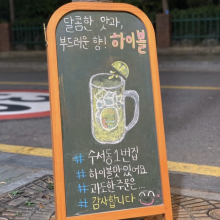 달콤한 맛과,
부드러운 향! 하이볼
# 수서동 1번집
# 하이볼맛있어요
# 과도한주문은..
# 감사합니다